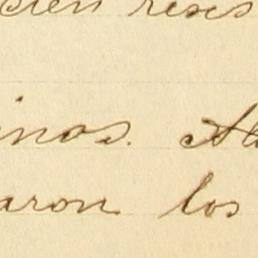 cien reses
inos. Al
aron los